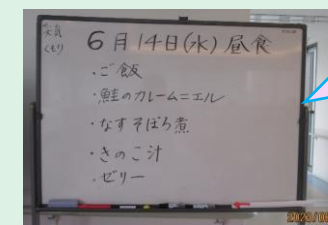 天気
くもり
6月14日(水)昼食
・ご飯
・鮭のカレームニエル
・なすそぼろ煮
・きのこ汁
・ゼリー